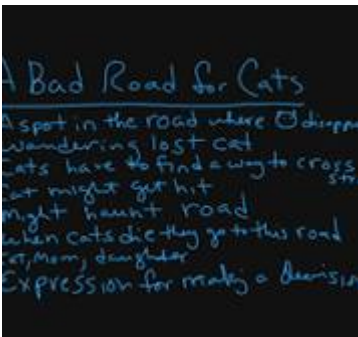 A Bad Road for Cats
A spot in the road where disappe
wandering lost cat
Cats have to find a way to cross
Cat might get hit
might haunt road
when cats die they go to this road
Cat, Mom, daughter
Expression for making a Decision